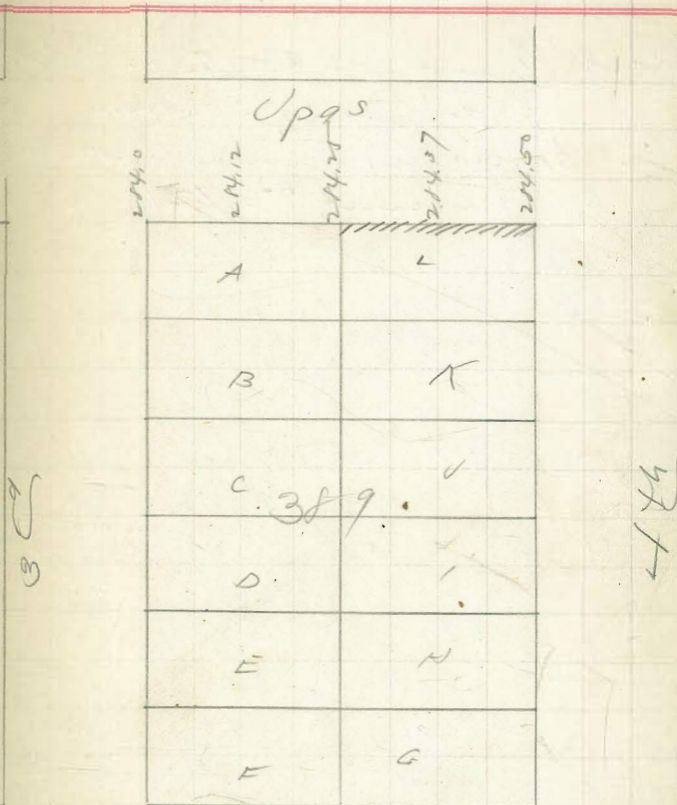 Upas
284.0 284.12 284.25 284.37 284.50
A L
B K
C J
389
D I
E H
F G
3d
4th